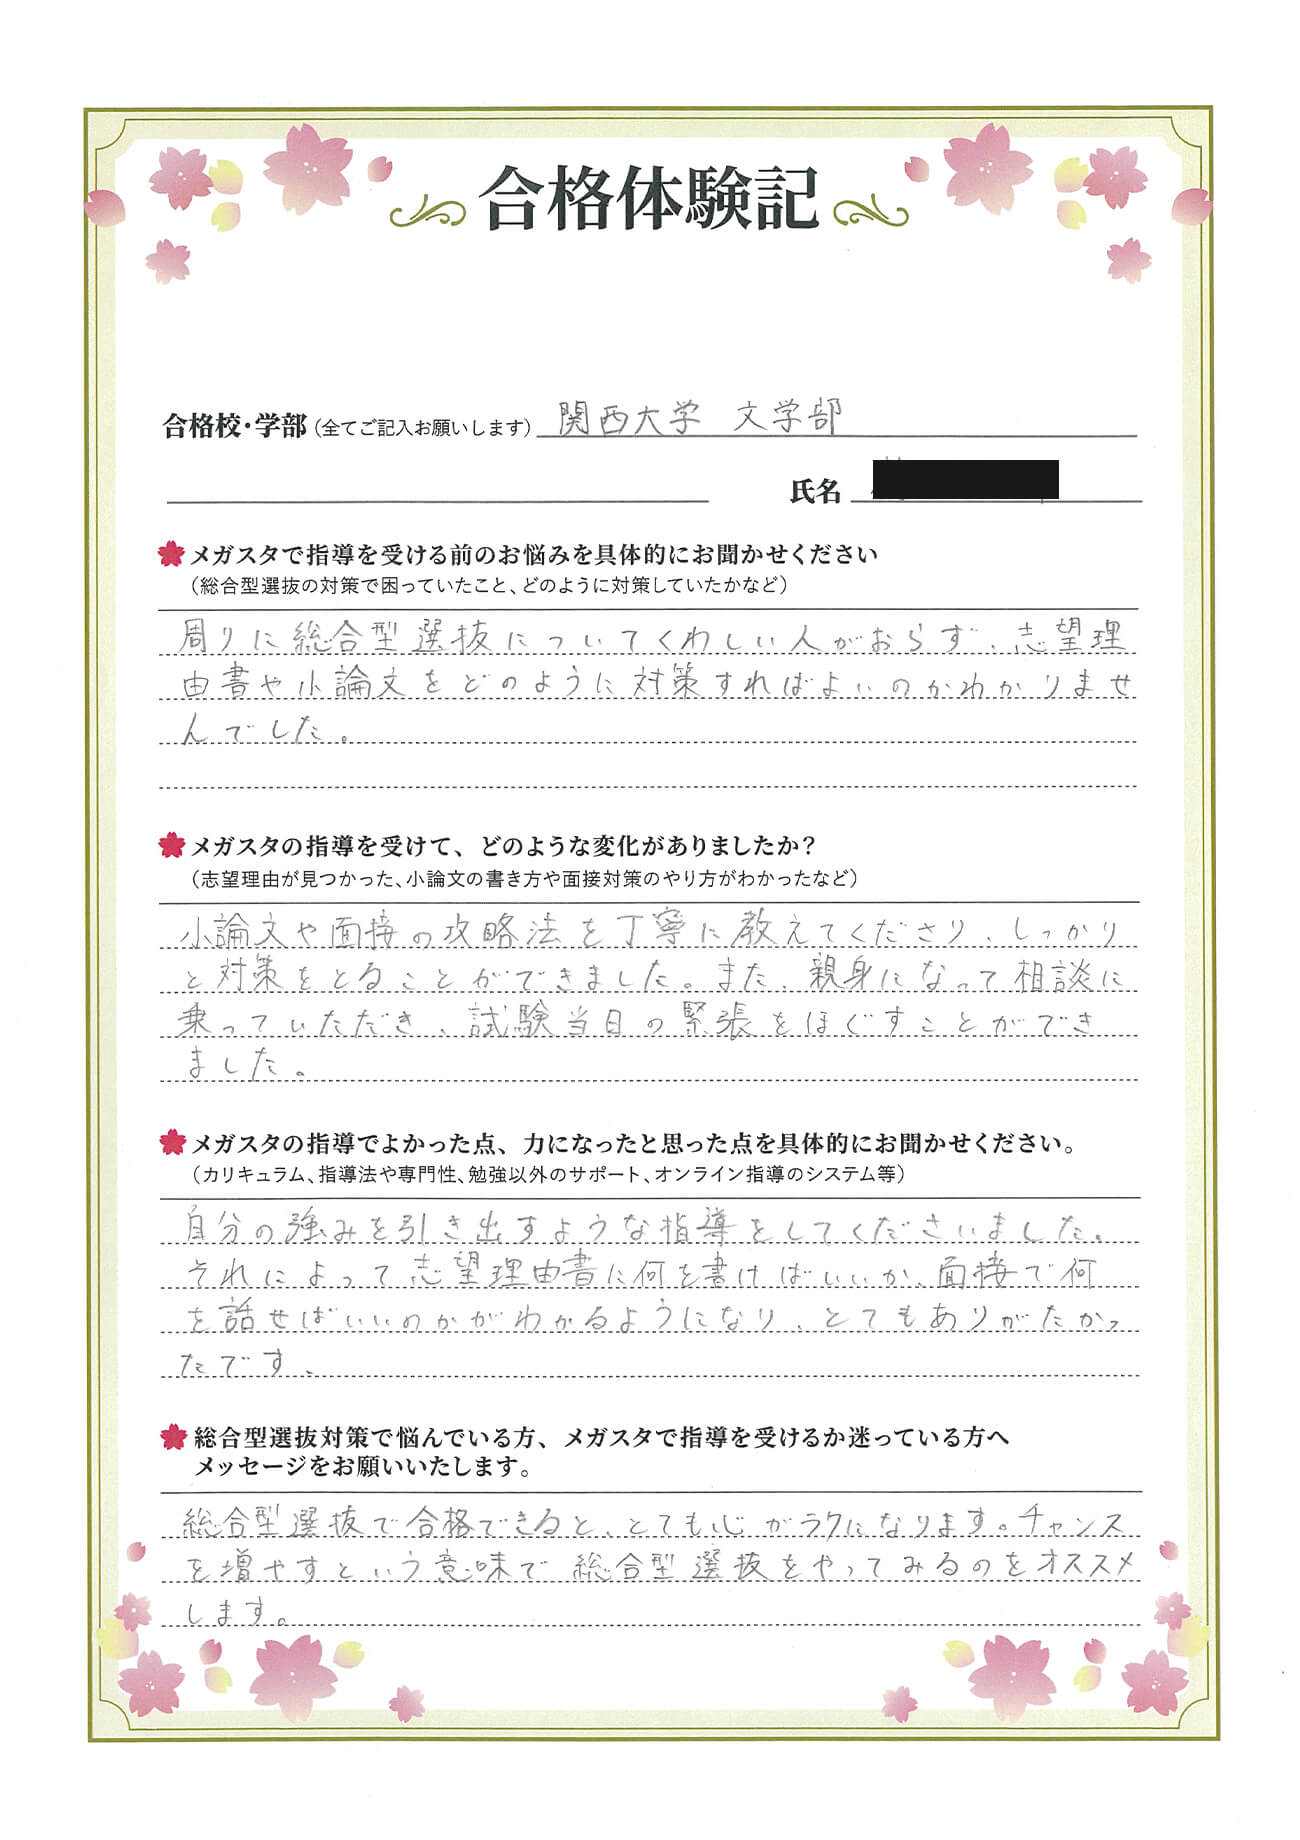 合格体験記
合格校・学部(全てご記入お願いします) 関西大学 文学部
氏名
メガスタで指導を受ける前のお悩みを具体的にお聞かせください
(総合型選抜の対策で困っていたこと、どのように対策していたかなど)
周りに総合型選抜についてくわしい人がおらず、志望理
由書や小論文をどのように対策すればよいのかわかりませ
んでした。
メガスタの指導を受けて、どのような変化がありましたか?
(志望理由が見つかった、小論文の書き方や面接対策のやり方がわかったなど)
小論文や面接の攻略法を丁寧に教えてくださり、しっかり
と対策をとることができました。また、親身になって相談に
乗っていただき、試験当日の緊張をほぐすことができ
ました。
メガスタの指導でよかった点、力になったと思った点を具体的にお聞かせください。
(カリキュラム、指導法や専門性、勉強以外のサポート、オンライン指導のシステム等)
自分の強みを引き出すような指導をしてくださいました。
それによって志望理由書に何を書けばいいか、面接で何
を話せばいいのかがわかるようになり、とてもありがたかっ
たです。
総合型選抜対策で悩んでいる方、メガスタで指導を受けるか迷っている方へ
メッセージをお願いいたします。
総合型選抜で合格できると、とても心がラクになります。チャンス
を増やすという意味で総合型選抜をやってみるのをオススメ
します。